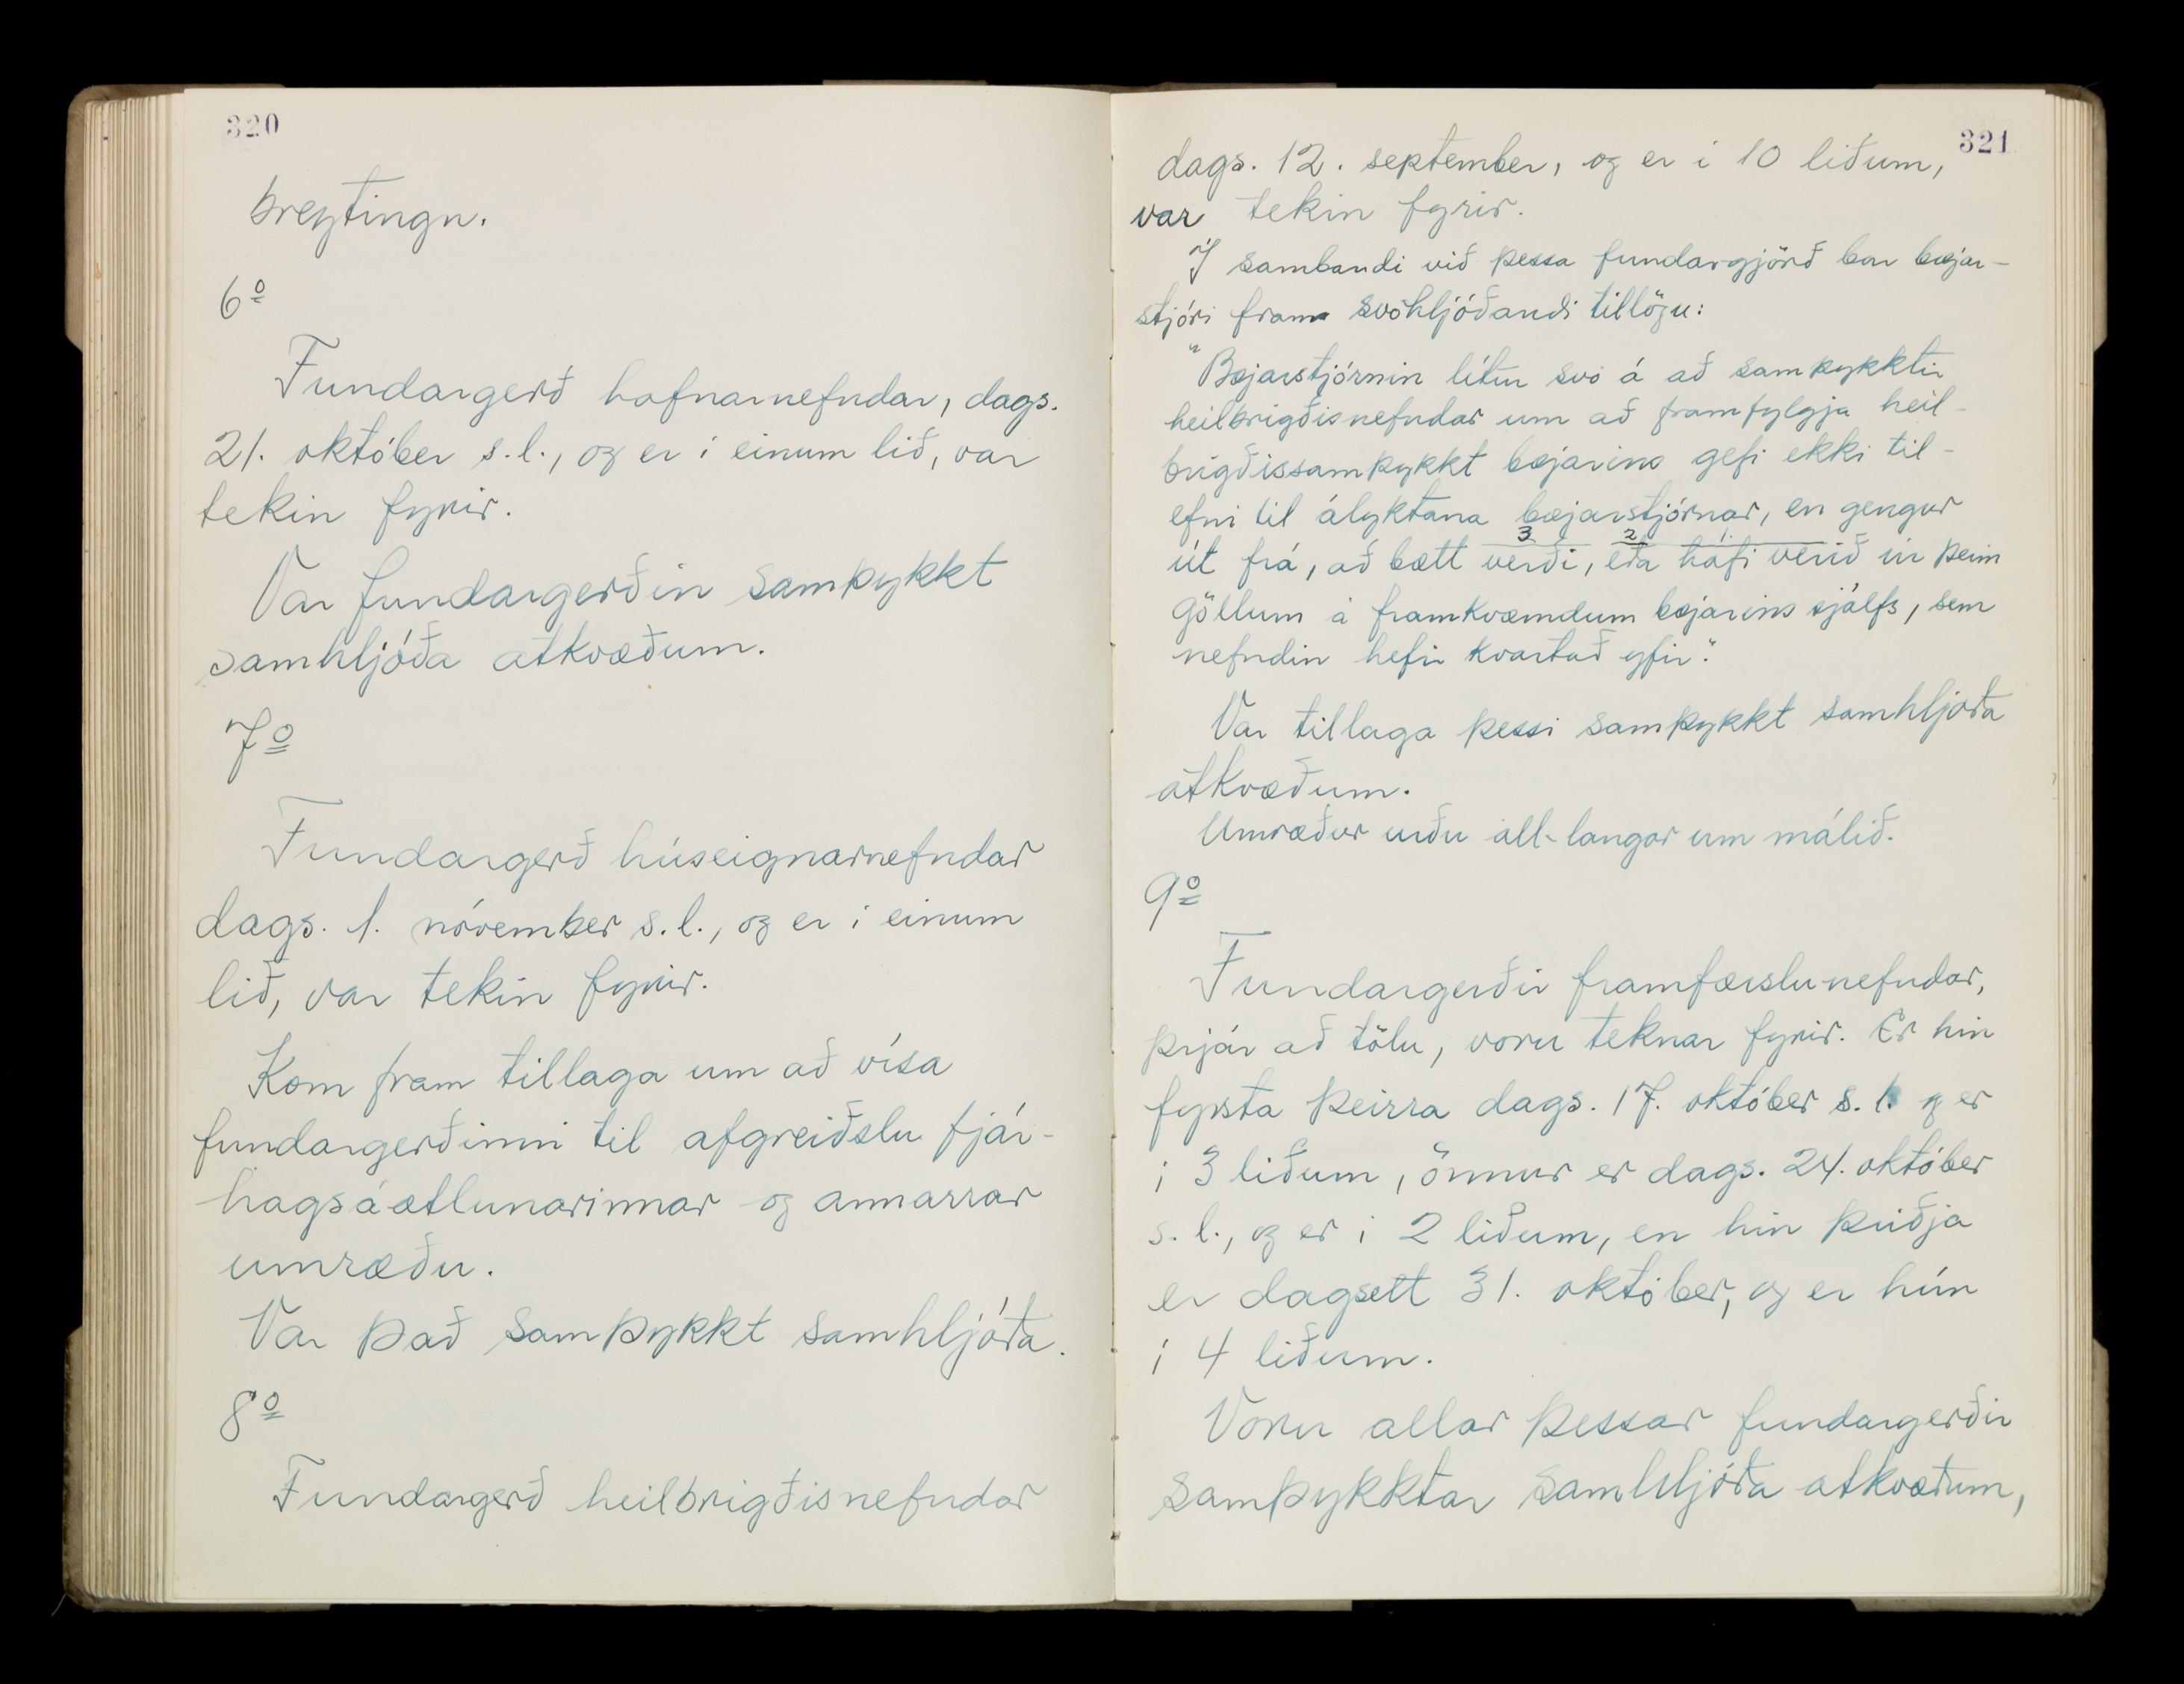 320
breytingu.
6º
Fundargerð hafnarnefndar, dags.
21. október s.l., og er í einum lið, var
tekin fyrir.
Var fundargerðin samþykkt
samhljóða atkvæðum.
7º
Fundargerð húseignarnefndar
dags. 1. nóvember s.l., og er í einum
lið, var tekin fyrir.
Kom fram tillaga um að vísa
fundargerðinni til afgreiðslu fjár-
hagsáætlunarinnar og annarrar
umræðu.
Var það samþykkt samhljóða.
8º
Fundargerð heilbrigðisnefndar
321
dags. 12. september, og er í 10 liðum,
var tekin fyrir.
Í sambandi við þessa fundargjörð bar bæjar-
stjóri fram svohljóðandi tillögu:
"Bæjarstjórnin lítur svo á að samþykktir
heilbrigðisnefndar um að framfylgja heil-
brigðissamþykkt bæjarins gefi ekki til-
efni til ályktana bæjarstjórnar, en gengur
3 2 1.
út frá, að bætt verði, eða hafi verið úr þeim
göllum á framkvæmdum bæjarins sjálfs, sem
nefndin hefir kvartað yfir."
Var tillaga þessi samþykkt samhljóða
atkvæðum.
Umræður urðu all-langar um málið.
9º
Fundargerðir framfærslunefndar,
þrjár að tölu, voru teknar fyrir. Er hin
fyrsta þeirra dags. 17. október s.l. og er
í 3 liðum, önnur er dags. 24. október
s.l., og er í 2 liðum, en hin þriðja
er dagsett 31. október, og er hún
í 4 liðum.
Voru allar þessar fundargerðir
samþykktar samhljóða atkvæðum,